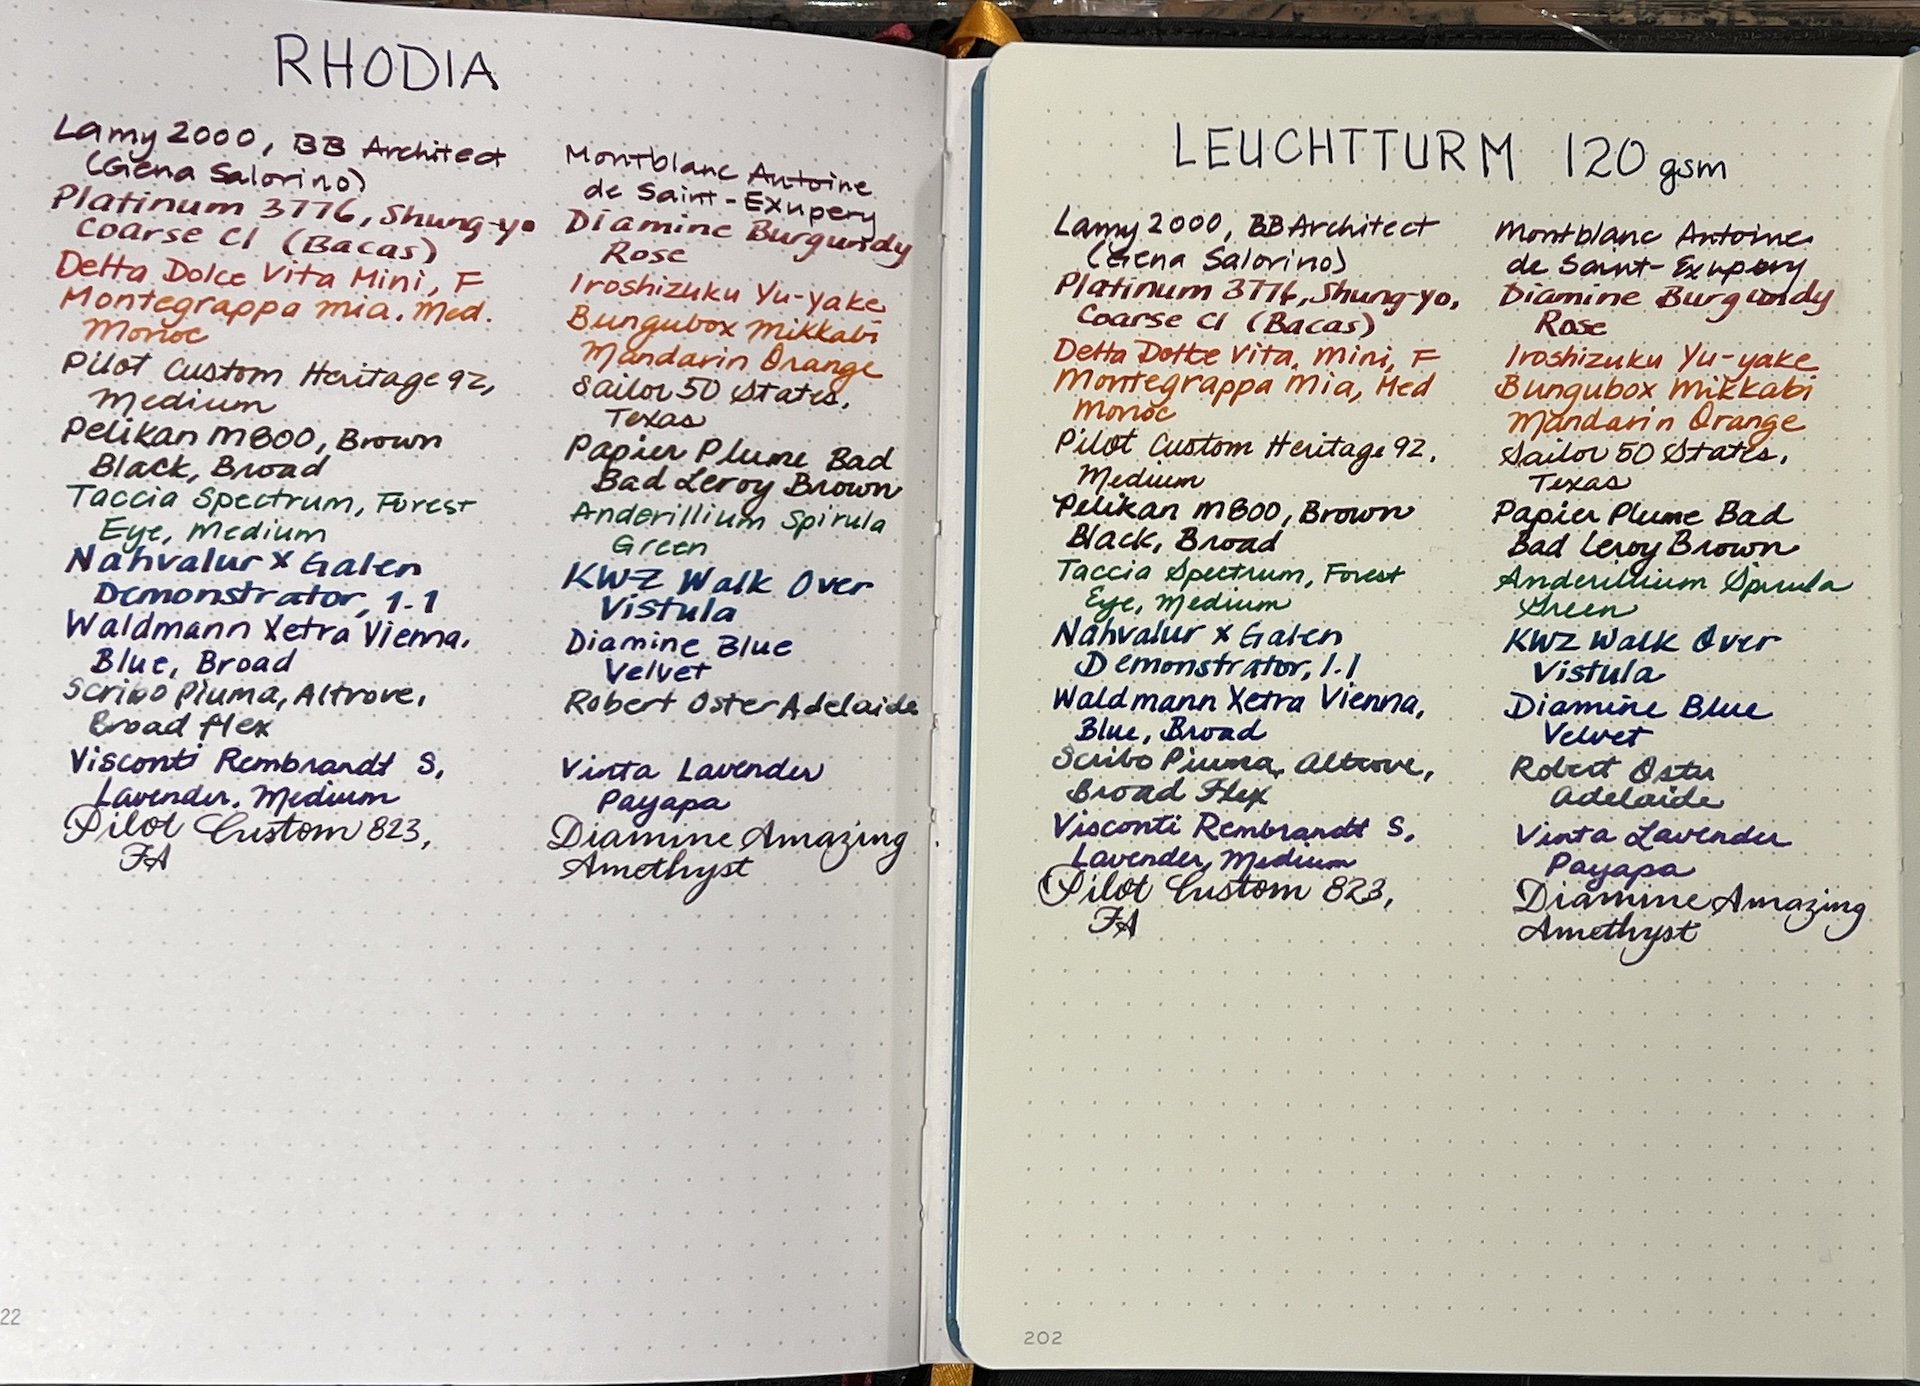 RHODIA
Lamy 2000, BB Architect
(Gena Salorino)
Platinum 3776, Shung-yo
Coarse CI (Bacas)
Delta Dolce Vita Mini, F
Montegrappa Mia, Med.
Monoc
Pilot Custom Heritage 92,
Medium
Pelikan M800, Brown
Black, Broad
Taccia Spectrum, Forest
Eye, Medium
Nahvalur x Galen
Demonstrator, 1.1
Waldmann Xetra Vienna,
Blue, Broad
Scribo Piuma, Altrove,
Broad flex
Visconti Rembrandt S,
Lavender, Medium
Pilot Custom 823,
FA
Montblanc Antoine
de Saint-Exupery
Diamine Burgundy
Rose
Iroshizuku Yu-yake
Bungubox Mikkabi
Mandarin Orange
Sailor 50 States,
Texas
Papier Plume Bad
Bad Leroy Brown
Anderillium Spirula
Green
KWZ Walk Over
Vistula
Diamine Blue
Velvet
Robert Oster Adelaide
Vinta Lavender
Payapa
Diamine Amazing
Amethyst
22
LEUCHTTURM 120 gsm
Lamy 2000, BB Architect
(Gena Salorino)
Platinum 3776, Shung-yo,
Coarse CI (Bacas)
Delta Dolce Vita, Mini, F
Montegrappa Mia, Med
Monoc
Pilot Custom Heritage 92,
Medium
Pelikan M800, Brown
Black, Broad
Taccia Spectrum, Forest
Eye, Medium
Nahvalur x Galen
Demonstrator, 1.1
Waldmann Xetra Vienna,
Blue, Broad
Scribo Piuma, Altrove,
Broad Flex
Visconti Rembrandt S,
Lavender, Medium
Pilot Custom 823,
FA
Montblanc Antoine
de Saint-Exupery
Diamine Burgundy
Rose
Iroshizuku Yu-yake
Bungubox Mikkabi
Mandarin Orange
Sailor 50 States,
Texas
Papier Plume Bad
Bad Leroy Brown
Anderillium Spirula
Green
KWZ Walk Over
Vistula
Diamine Blue
Velvet
Robert Oster
Adelaide
Vinta Lavender
Payapa
Diamine Amazing
Amethyst
202